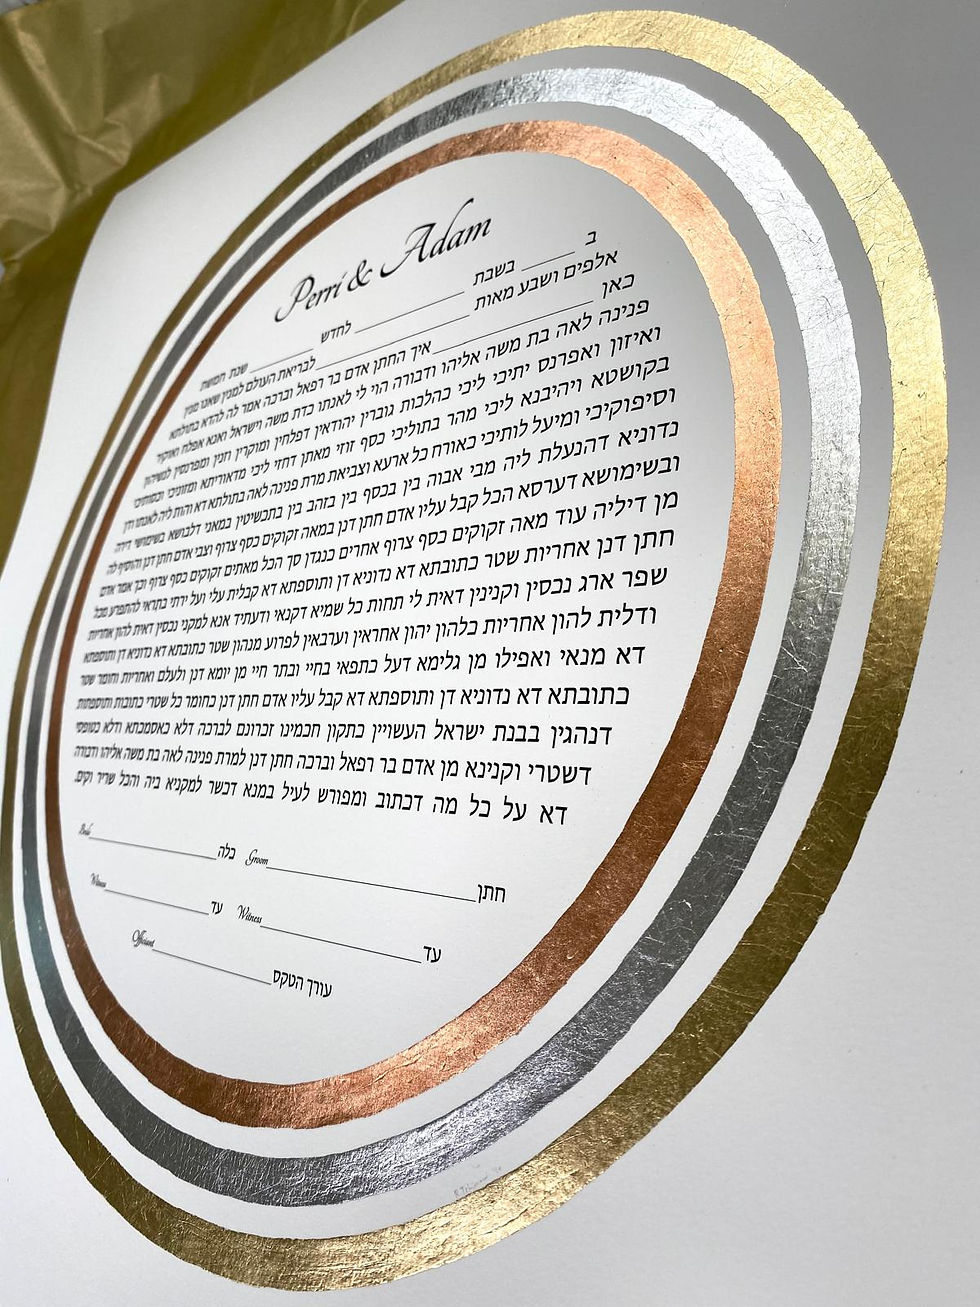 Perri & Adam
ב ______ בשבת ______ לחדש ______ שנת חמשת
אלפים ושבע מאות ______ לבריאת העולם למנין שאנו מנין
כאן ______ איך החתן אדם בר רפאל וברכה אמר לה להדא בתולתא
פנינה לאה בת משה אליהו ודבורה הוי לי לאנתו כדת משה וישראל ואנא אפלח ואוקיר
ואיזון ואפרנס יתיכי ליכי כהלכות גוברין יהודאין דפלחין ומוקרין וזנין ומפרנסין לנשיהון
בקושטא ויהיבנא ליכי מהר בתוליכי כסף זוזי מאתן דחזי ליכי מדאוריתא ומזוניכי וכסותיכי
וסיפוקיכי ומיעל לותיכי כאורח כל ארעא וצביאת מרת פנינה לאה בתולתא דא והות ליה לאנתו ודין
נדוניא דהנעלת ליה מבי אבוה בין בכסף בין בזהב בין בתכשיטין במאני דלבושא בשימושי דירה
ובשימושא דערסא הכל קבל עליו אדם חתן דנן במאה זקוקים כסף צרוף וצבי אדם חתן דנן והוסיף לה
מן דיליה עוד מאה זקוקים כסף צרוף אחרים כנגדן סך הכל מאתים זקוקים כסף צרוף וכך אמר אדם
חתן דנן אחריות שטר כתובתא דא נדוניא דן ותוספתא דא קבלית עלי ועל ירתי בתראי להתפרע מכל
שפר ארג נכסין וקנינין דאית לי תחות כל שמיא דקנאי ודעתיד אנא למקני נכסין דאית להון אחריות
ודלית להון אחריות כלהון יהון אחראין וערבאין לפרוע מנהון שטר כתובתא דא נדוניא דן ותוספתא
דא מנאי ואפילו מן גלימא דעל כתפאי בחיי ובתר חיי מן יומא דנן ולעלם ואחריות וחומר שטר
כתובתא דא נדוניא דן ותוספתא דא קבל עליו אדם חתן דנן כחומר כל שטרי כתובות ותוספתות
דנהגין בבנת ישראל העשויין כתקון חכמינו זכרונם לברכה דלא כאסמכתא ודלא כטופסי
דשטרי וקנינא מן אדם בר רפאל וברכה חתן דנן למרת פנינה לאה בת משה אליהו ודבורה
דא על כל מה דכתוב ומפורש לעיל במנא דכשר למקניא ביה והכל שריר וקים.
חתן ______ Groom כלה ______ Bride
עד ______ Witness עד ______ Witness
עורך הטקס ______ Officiant